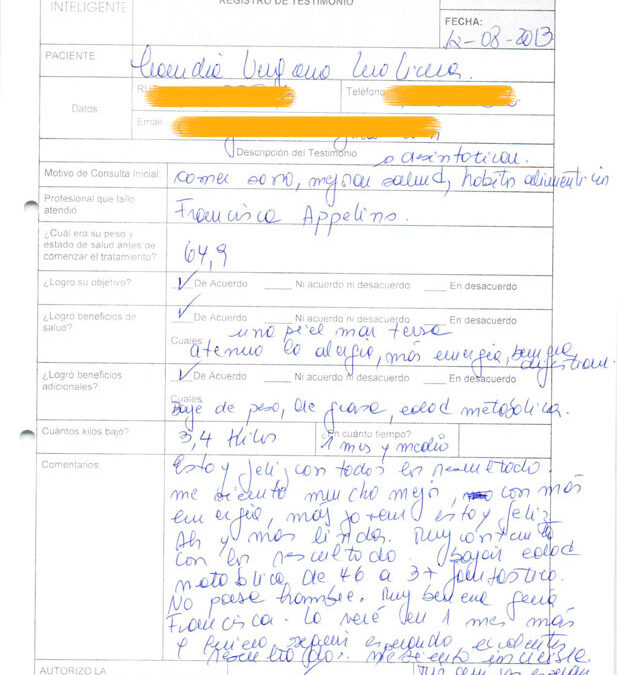 INTELIGENTE
REGISTRO DE TESTIMONIO
FECHA:
12-08-2013
PACIENTE:
Claudia Vergara
Datos:
Teléfono
Email
Descripción del Testimonio
Motivo de Consulta Inicial
comer sano, mejorar salud, habito alimenticio
Profesional que la/lo
atendió
Francisca Appelino.
¿Cuál era su peso y
estado de salud antes de
comenzar el tratamiento?
64,9
¿Logro su objetivo?
De Acuerdo
Ni acuerdo ni desacuerdo
En desacuerdo
¿Logró beneficios de
salud?
De Acuerdo
Ni acuerdo ni desacuerdo
En desacuerdo
Cuales
una piel mas tersa
atenuo la alergia, más energia,
¿Logró beneficios
adicionales?
De Acuerdo
Ni acuerdo ni desacuerdo
En desacuerdo
Cuales
Baje de peso, de grasa, edad metabolica.
Cuántos kilos bajó?
3,4 Kilos
¿En cuánto tiempo?
1 mes y medio
Comentarios:
Estoy feliz con todos los resultado.
me siento mucho mejor, con más
energia, más joven, estoy feliz
Ah y más linda. Muy contenta
con los resultado. Bajar edad
metabólica de 46 a 37 fantastico.
No pase hambre. Muy buena
Francisca. La veré en 1 mes más
y quiero seguir esperando excelentes
resultados. me siento increible.
AUTORIZO LA